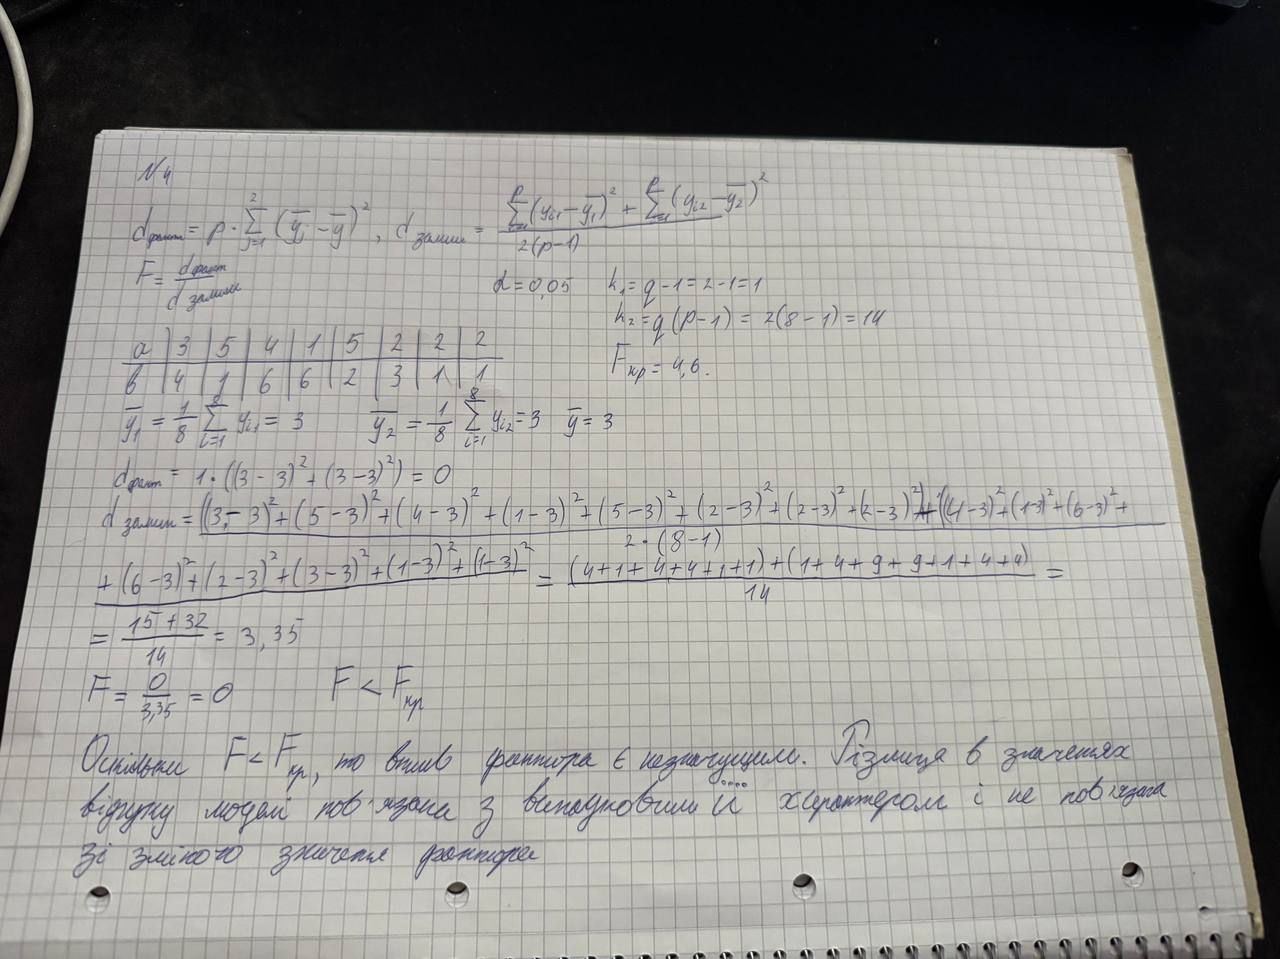 N 4
d факт = p · Σ_{j=1}^{2} (ȳ_j − ȳ)², d залиш = (Σ_{i=1}^{p} (y_{i1} − ȳ₁)² + Σ_{i=1}^{p} (y_{i2} − ȳ₂)²) / 2(p−1)
F = d факт / d залиш α = 0,05 k₁ = q − 1 = 2 − 1 = 1
k₂ = q(p−1) = 2(8−1) = 14
a | 3 | 5 | 4 | 1 | 5 | 2 | 2 | 2
b | 4 | 1 | 6 | 6 | 2 | 3 | 1 | 1
F кр = 4,6.
ȳ₁ = 1/8 Σ_{i=1}^{8} y_{i1} = 3 ȳ₂ = 1/8 Σ_{i=1}^{8} y_{i2} = 3 ȳ = 3
d факт = 1·((3−3)² + (3−3)²) = 0
d залиш = ((3−3)² + (5−3)² + (4−3)² + (1−3)² + (5−3)² + (2−3)² + (2−3)² + (2−3)²) + ((4−3)² + (1−3)² + (6−3)² +
2·(8−1)
+ (6−3)² + (2−3)² + (3−3)² + (1−3)² + (1−3)² = ((4+1+4+4+1+1) + (1+4+9+9+1+4+4)) / 14 =
= (15+32) / 14 = 3,35
F = 0 / 3,35 = 0 F < F кр
Оскільки F < F кр, то вплив фактора є незначущим. Різниця в значенях
відгуку моделі пов'язана з випадковим її характером і не пов'язана
зі зміною значеня фактора